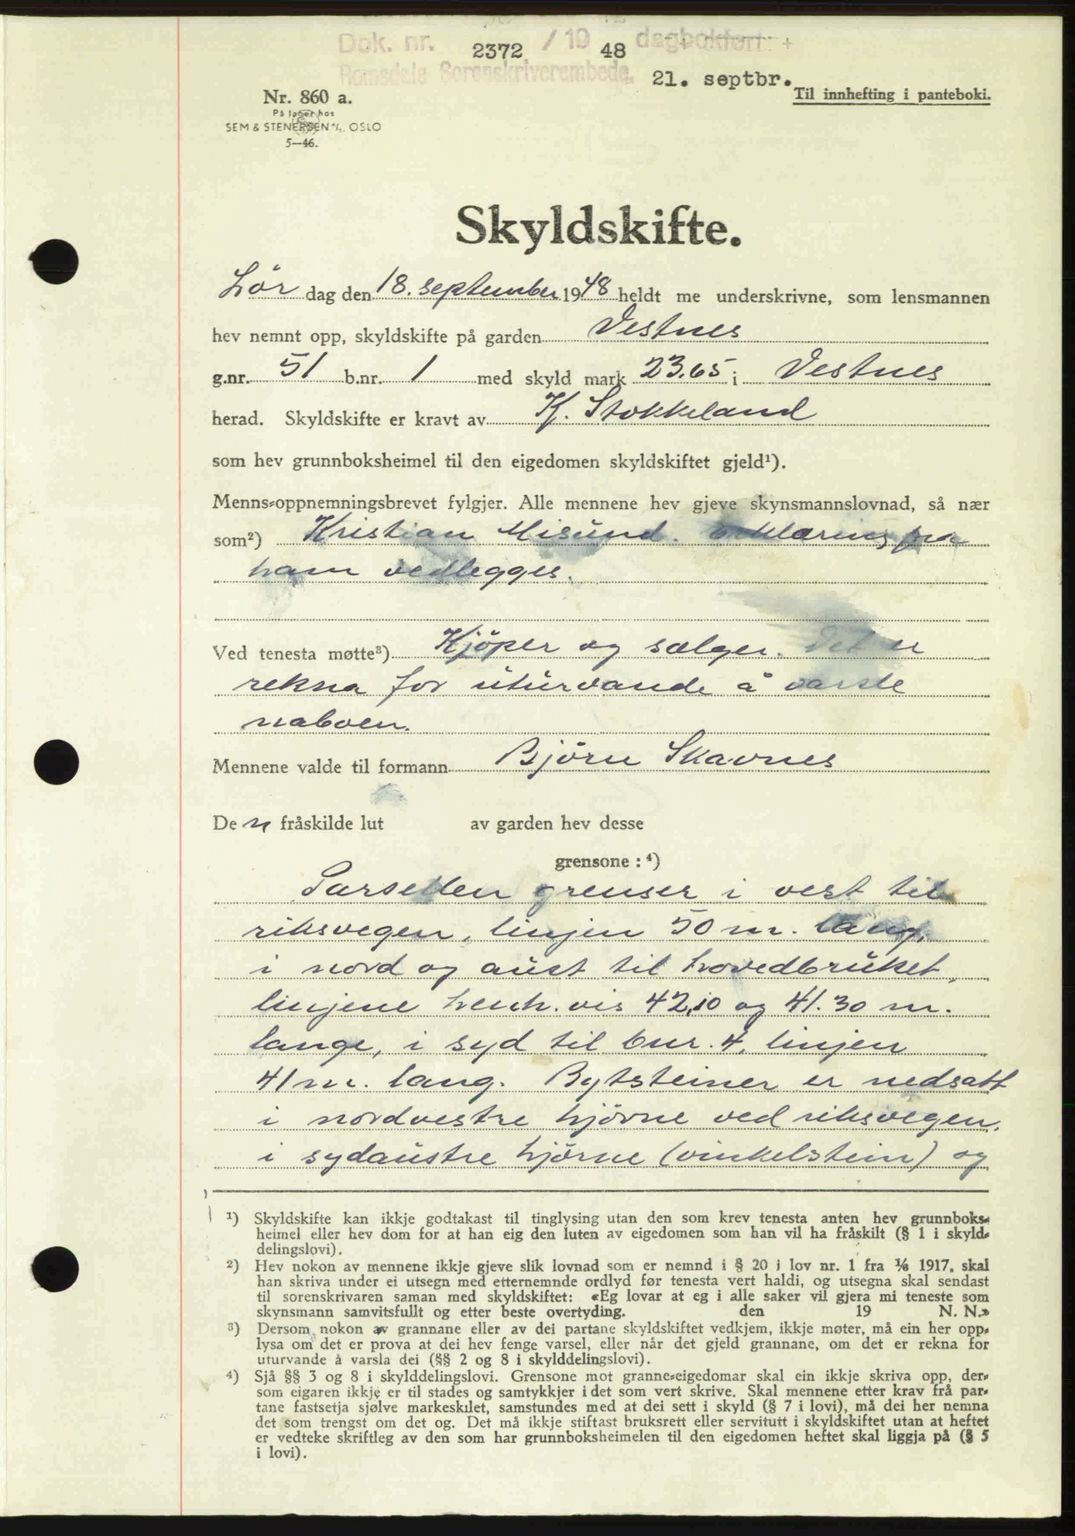 Dok. nr. 2372 / 19 48 dagbokført
Romsdale Sorenskriverembede. 21. septbr.
Til innhefting i panteboki.
Nr. 860 a.
På lager hos
SEM & STENERSEN A/S, OSLO
5—46.
Skyldskifte.
Lör dag den 18. september 1948 heldt me underskrivne, som lensmannen
hev nemnt opp, skyldskifte på garden Vestnes
g.nr. 51 b.nr. 1 med skyld mark 23.65 i Vestnes
herad. Skyldskifte er kravt av K. Stokkeland
som hev grunnboksheimel til den eigedomen skyldskiftet gjeld¹).
Menns-oppnemningsbrevet fylgjer. Alle mennene hev gjeve skynsmannslovnad, så nær
som²) Kristian Misund. Erklæring fra
ham vedlegges.
Ved tenesta møtte³) Kjöper og sælger. Det er
rekna for uturvande å varsle
naboen.
Mennene valde til formann Björn Skavnes
De n fråskilde lut av garden hev desse
grensone : ⁴)
Parsellen grenser i vest til
riksvegen, linjen 50 m. lang,
i nord og aust til hovedbruket,
linjene henh. vis 42,10 og 41.30 m.
lange, i syd til bnr. 4, linjen
41 m. lang. Bytsteiner er nedsatt
i nordvestre hjörne ved riksvegen,
i sydaustre hjörne (vinkelstein) og
¹) Skyldskifte kan ikkje godtakast til tinglysing utan den som krev tenesta anten hev grunnboks-
heimel eller hev dom for at han eig den luten av eigedomen som han vil ha fråskilt (§ 1 i skyld-
delingslovi).
²) Hev nokon av mennene ikkje gjeve slik lovnad som er nemnd i § 20 i lov nr. 1 fra ⅙ 1917, skal
han skriva under ei utsegn med etternemnde ordlyd før tenesta vert haldi, og utsegna skal sendast
til sorenskrivaren saman med skyldskiftet: «Eg lovar at eg i alle saker vil gjera mi teneste som
skynsmann samvitsfullt og etter beste overtyding. den 19 N. N.»
³) Dersom nokon av grannane eller av dei partane skyldskiftet vedkjem, ikkje møter, må ein her opp-
lysa om det er prova at dei hev fenge varsel, eller når det gjeld grannane, om det er rekna for
uturvande å varsla dei (§§ 2 og 8 i skylddelingslovi).
⁴) Sjå §§ 3 og 8 i skylddelingslovi. Grensone mot granne-eigedomar skal ein ikkje skriva opp, der-
som eigaren ikkje er til stades og samtykkjer i det som vert skrive. Skal mennene etter krav frå par-
tane fastsetja sjølve markeskilet, samstundes med at dei sett i skyld (§ 7 i lovi), må dei her nemna
det som trengst om det og. Det må ikkje stiftast bruksrett eller servitutt i skyldskiftet utan at heftet
er vedteke skriftleg av den som har grunnboksheimelen til den eigedomen heftet skal liggja på (§ 5
i lovi).